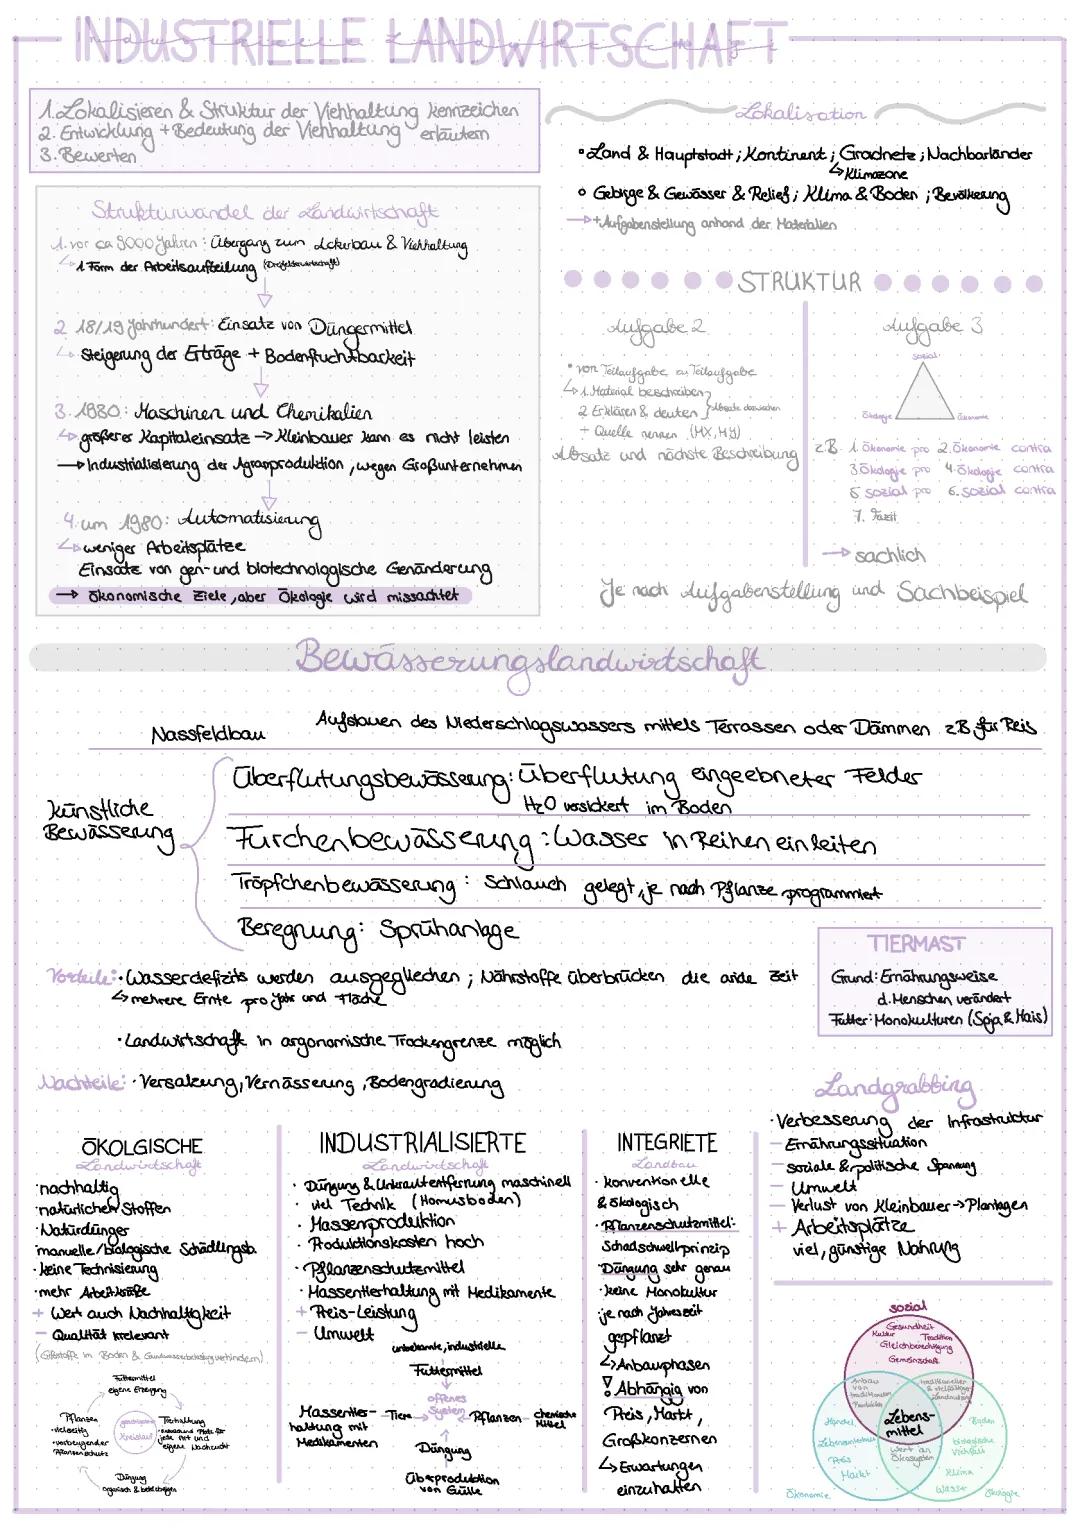 INDUSTRIELLE LANDWIRTSCHAFT
1. Lokalisieren & Struktur der Viehhaltung kennzeichen
2. Entwicklung + Bedeutung der Viehhaltung erläutern
3. Bewerten
Strukturwandel der Landwirtschaft
1. vor ca 9000 Jahren: Übergang zum Ackerbau & Viehhaltung
↳ 1 Form der Arbeitsaufteilung
2 18/19 Jahrhundert: Einsatz von Düngermittel
↳ Steigerung der Erträge + Bodenfruchtbarkeit
3. 1980: Maschinen und Chemikalien
↳ größerer Kapitaleinsatz → Kleinbauer kann es nicht leisten
→ Industrialisierung der Agrarproduktion, wegen Großunternehmen
4. um 1980: Automatisierung
↳ weniger Arbeitsplätze
Einsatz von gen- und biotechnologische Genänderung
→ ökonomische Ziele, aber Ökologie wird missachtet
Lokalisation
• Land & Hauptstadt; Kontinent; Gradnetz; Nachbarländer
↳ Klimazone
• Gebirge & Gewässer & Relief; Klima & Boden; Bevölkerung
→ + Aufgabenstellung anhand der Materialien
STRUKTUR
Aufgabe 2
• von Teilaufgabe zu Teilaufgabe
↳ 1. Material beschreiben
2 Erklären & deuten } Absatz dazwischen
+ Quelle nennen (MX, MY)
Absatz und nächste Beschreibung
Aufgabe 3
sozial
Ökologie Ökonomie
z.B. 1. Ökonomie pro 2. Ökonomie contra
3 Ökologie pro 4. Ökologie contra
5 sozial pro 6. sozial contra
7. Fazit
→ sachlich
Je nach Aufgabenstellung und Sachbeispiel
Bewässerungslandwirtschaft
Nassfeldbau Aufstauen des Niederschlagswassers mittels Terrassen oder Dämmen z.B für Reis
künstliche Bewässerung
Überflutungsbewässerung: Überflutung eingeebneter Felder
H2O versickert im Boden
Furchenbewässerung: Wasser in Reihen einleiten
Tröpfchenbewässerung: Schlauch gelegt, je nach Pflanze programmiert
Beregnung: Sprühanlage
Vorteile: • Wasserdefizits werden ausgegliechen; Nährstoffe überbrücken die aride Zeit
↳ mehrere Ernte pro Jahr und Fläche
• Landwirtschaft in argonomische Trockengrenze möglich
Nachteile: • Versalzung, Vernässerung, Bodengradierung
TIERMAST
Grund: Ernährungsweise
d. Menschen verändert
Futter: Monokulturen (Soja & Mais)
Landgrabbing
• Verbesserung der Infrastruktur
– Ernährungssituation
– soziale & politische Spannung
– Umwelt
– Verlust von Kleinbauer → Plantagen
+ Arbeitsplätze
viel, günstige Nahrung
ÖKOLGISCHE
Landwirtschaft
• nachhaltig
• natürlichen Stoffen
• Natürdünger
• manuelle/biologische Schädlingsb.
• keine Technisierung
• mehr Arbeitskräfte
+ Wert auch Nachhaltigkeit
– Qualität irrelevant
(Giftstoffe im Boden & Grundwasserbelastung verhindern)
Futtermittel
eigene Erzeugung
Pflanzen
• vielseitig
• vorbeugender
Pflanzenschutz
geschlossener
Kreislauf
Tierhaltung
• ausreichend Platz für
jede Art und
• eigene Nachzucht
Düngung
organisch & betriebseigen
INDUSTRIALISIERTE
Landwirtschaft
• Düngung & Unkrautentfernung maschinell
• viel Technik (Homusboden)
• Massenproduktion
• Produktionskosten hoch
• Pflanzenschutzmittel
• Massentierhaltung mit Medikamente
+ Preis-Leistung
– Umwelt
unbekannte, industrielle
Futtermittel
Massentier-haltung mit Medikamenten
Tiere
offenes System
Pflanzen
chemische Mittel
Düngung
Überproduktion
von Gülle
INTEGRIETE
Landbau
• konventionelle
& ökologisch
• Pflanzenschutzmittel:
Schadschwellprinzip
• Düngung sehr genau
• keine Monokultur
• je nach Jahreszeit
gepflanzt
↳ Anbauphasen
! Abhängig von
Preis, Markt,
Großkonzernen
↳ Erwartungen
einzuhalten
sozial
Gesundheit
Kultur Tradition
Gleichberechtigung
Gemeinschaft
Anbau von traditionellen Produkten
traditioneller & vielfältiger
Lebens-mittel
Wert an Ökosystem
Handel
Preis
Markt
Ökonomie
Boden
biologische Vielfalt
Klima
Wasser
Ökologie